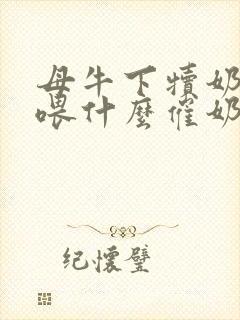 母牛下犊奶
喂什麽催奶
纪怀璧